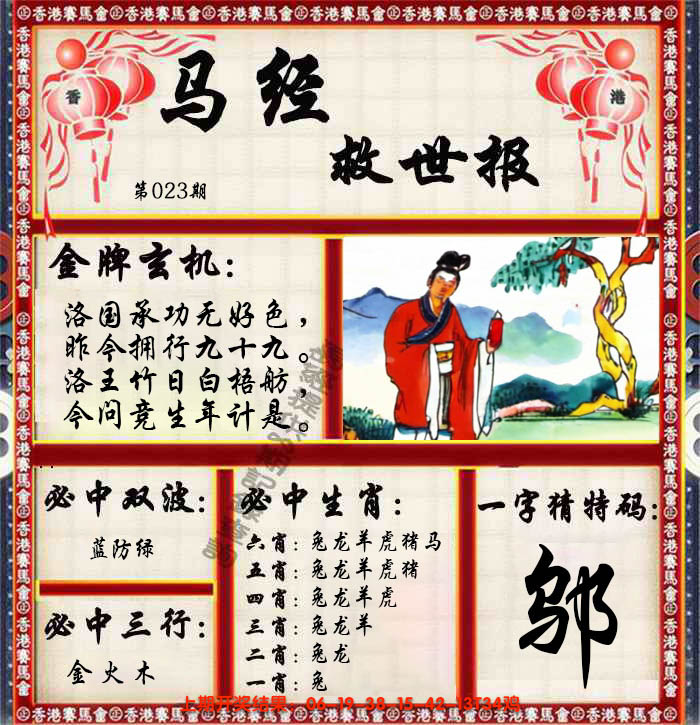 香港賽馬會
香
港
马经
救世报
第023期
金牌玄机:
洛国承功无好色，
昨今拥行九十九。
洛王竹日白梧舫，
今问竞生年计是。
必中双波:
蓝防绿
必中三行:
金火木
必中生肖:
六肖: 兔龙羊虎猪马
五肖: 兔龙羊虎猪
四肖: 兔龙羊虎
三肖: 兔龙羊
二肖: 兔龙
一肖: 兔
一字猜特码:
邬
上期开奖结果：06-19-38-15-42-13T34鸡